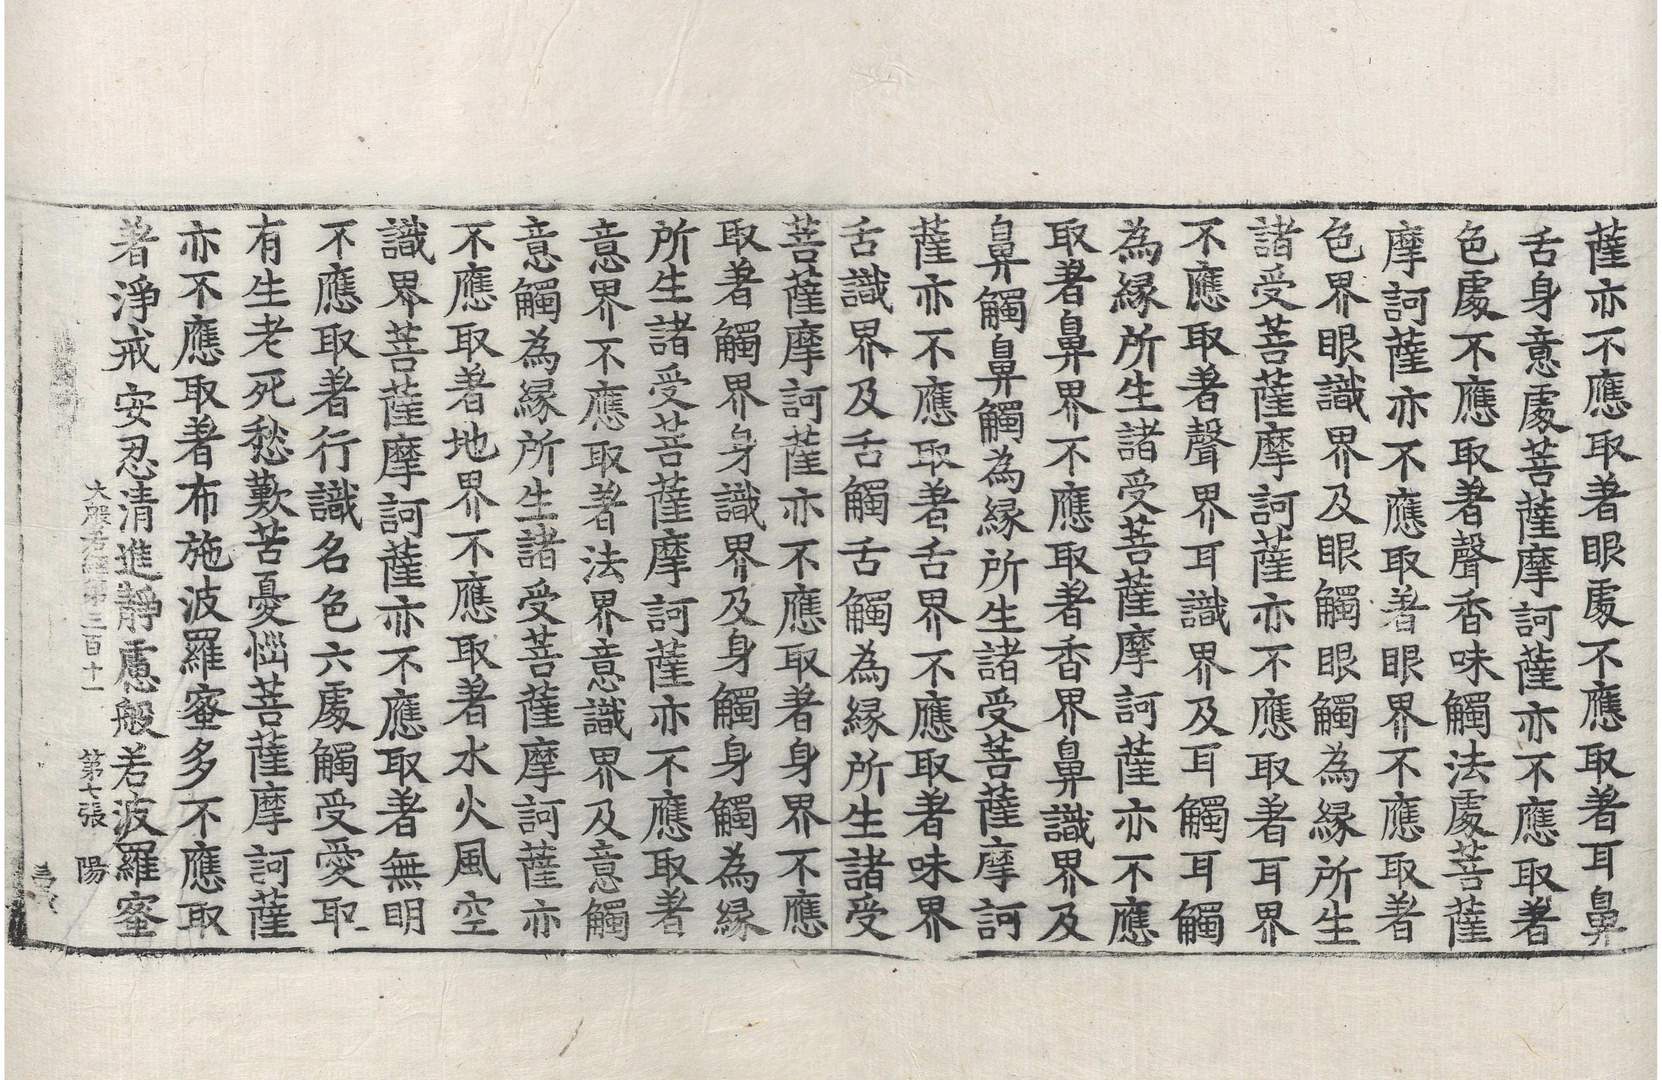 薩亦不應取著眼處不應取著耳鼻
舌身意處菩薩摩訶薩亦不應取著
色處不應取著聲香味觸法處菩薩
摩訶薩亦不應取著眼界不應取著
色界眼識界及眼觸眼觸為緣所生
諸受菩薩摩訶薩亦不應取著耳界
不應取著聲界耳識界及耳觸耳觸
為緣所生諸受菩薩摩訶薩亦不應
取著鼻界不應取著香界鼻識界及
鼻觸鼻觸為緣所生諸受菩薩摩訶
薩亦不應取著舌界不應取著味界
舌識界及舌觸舌觸為緣所生諸受
菩薩摩訶薩亦不應取著身界不應
取著觸界身識界及身觸身觸為緣
所生諸受菩薩摩訶薩亦不應取著
意界不應取著法界意識界及意觸
意觸為緣所生諸受菩薩摩訶薩亦
不應取著地界不應取著水火風空
識界菩薩摩訶薩亦不應取著無明
不應取著行識名色六處觸受愛取
有生老死愁歎苦憂惱菩薩摩訶薩
亦不應取著布施波羅蜜多不應取
著淨戒安忍清進靜慮般若波羅蜜
大般若經第三百十一 第七張 陽